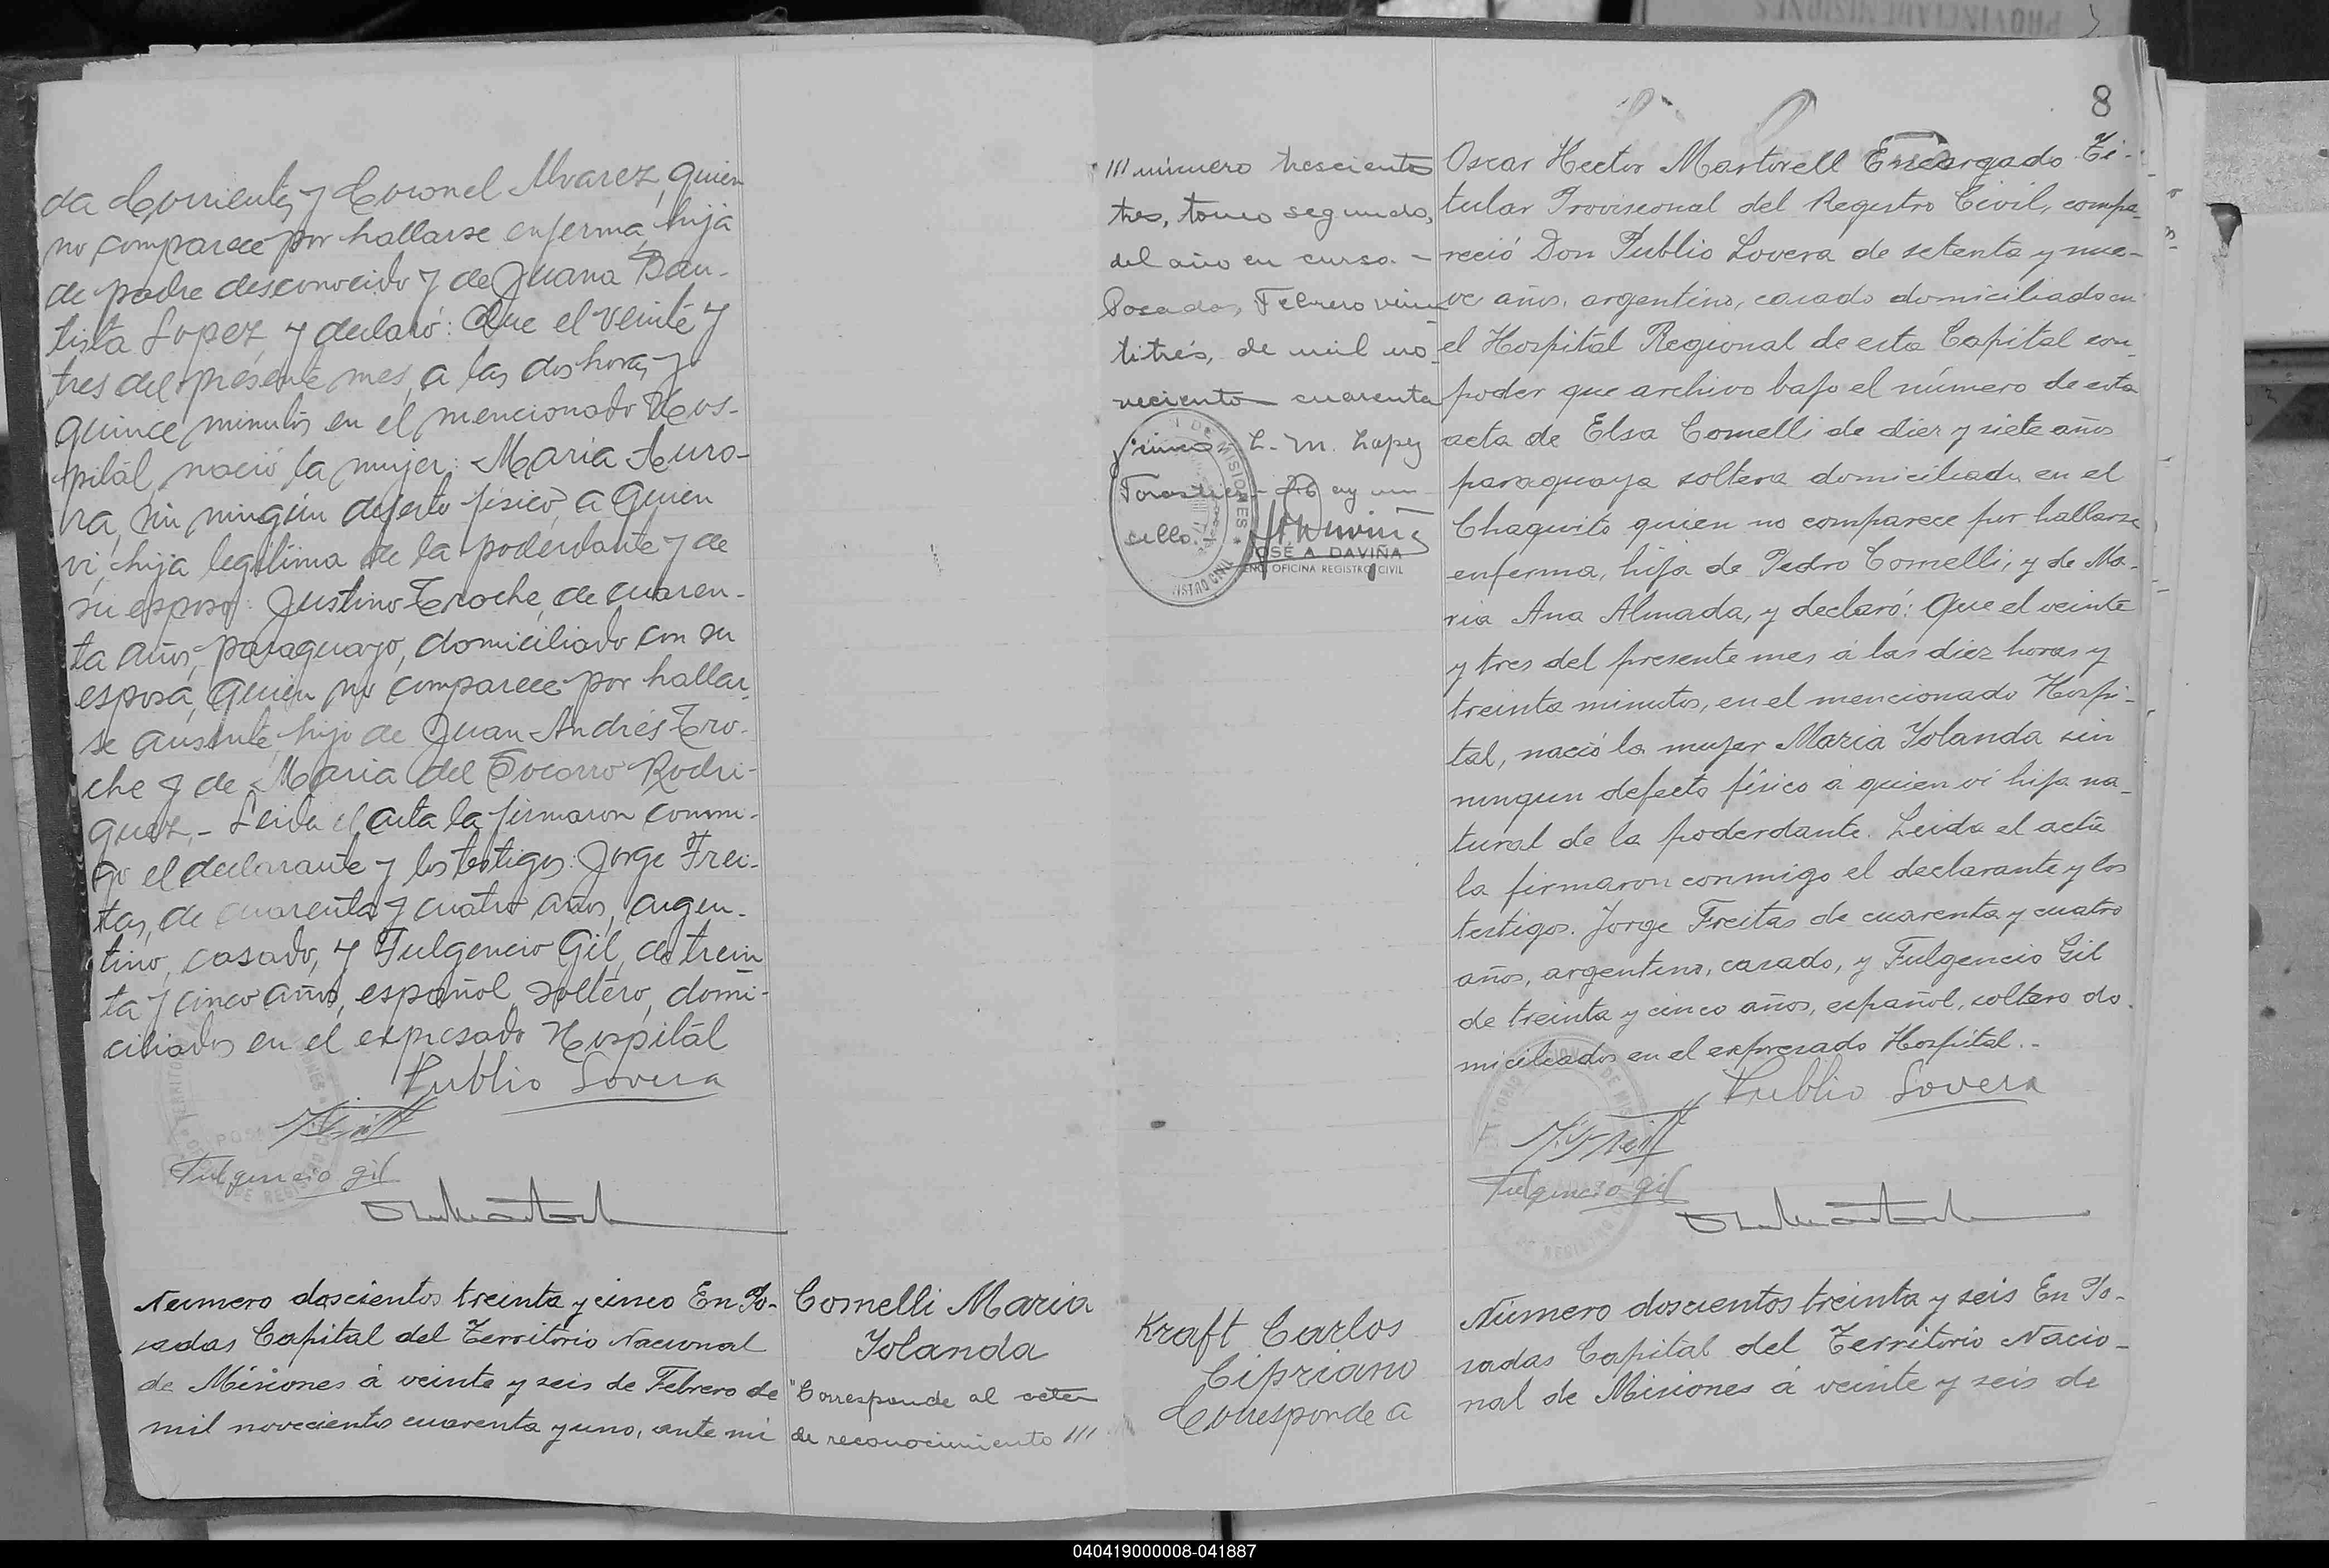 da Corrientes y Coronel Alvarez, quien
no comparece por hallarse enferma, hija
de padre desconocido y de Juana Bau-
tista Lopez, y declaró: Que el veinte y
tres del presente mes, a las dos horas y
quince minutos en el mencionado Hos-
pital, nació la mujer: Maria Auro-
ra, sin ningún defecto fisico, a quien
vi, hija legitima de la poderdante y de
su esposo: Justino Troche, de cuaren-
ta años, paraguayo, domiciliado con su
esposa, quien no comparece por hallar-
se ausente, hijo de Juan Andrés Tro-
che y de Maria del Socorro Rodri-
guez.- Leida el acta la firmaron conmi-
go el declarante y los testigos: Jorge Frei-
tas, de cuarenta y cuatro años, argen-
tino, casado, y Fulgencio Gil, de trein
ta y cinco años, español, soltero, domi-
ciliados en el expresado Hospital
Publio Lovera
Fulgencio gil
Numero doscientos treinta y cinco En Po-
sadas Capital del Territorio Nacional
de Misiones á veinte y seis de Febrero de
mil novecientos cuarenta y uno, ante mi
Comelli Maria
Yolanda
"Corresponde al acta
de reconocimiento ///
8
/// número trescientos
tres, tomo segundo,
del año en curso. -
Posadas, Febrero vein
titrés, de mil no-
veciento cuarenta
L. M. Lopez
sello.
JOSÉ A. DAVIÑA
ENC. OFICINA REGISTRO CIVIL
Oscar Hector Martorell Encargado Ti-
tular Provisional del Registro Civil, compa-
reció Don Publio Lovera de setenta y nue-
ve años, argentino, casado domiciliado en
el Hospital Regional de esta Capital con
poder que archivo bajo el número de esta
acta de Elsa Comelli de diez y siete años
paraguaya soltera domiciliada en el
Chaquito quien no comparece por hallarse
enferma, hija de Pedro Comelli, y de Ma-
ria Ana Almada, y declaró: Que el veinte
y tres del presente mes á las diez horas y
treinta minutos, en el mencionado Hospi-
tal, nació la mujer Maria Yolanda sin
ningun defecto físico á quien vi hija na-
tural de la poderdante. Leida el acta
la firmaron conmigo el declarante y los
testigos. Jorge Freitas de cuarenta y cuatro
años, argentino, casado, y Fulgencio Gil
de treinta y cinco años, español, soltero do-
miciliados en el expresado Hospital.-
Publio Lovera
Fulgencio gil
Kraft Carlos
Cipriano
Corresponde a
Número doscientos treinta y seis En Po-
sadas Capital del Territorio Nacio-
nal de Misiones á veinte y seis de
040419000008-041887